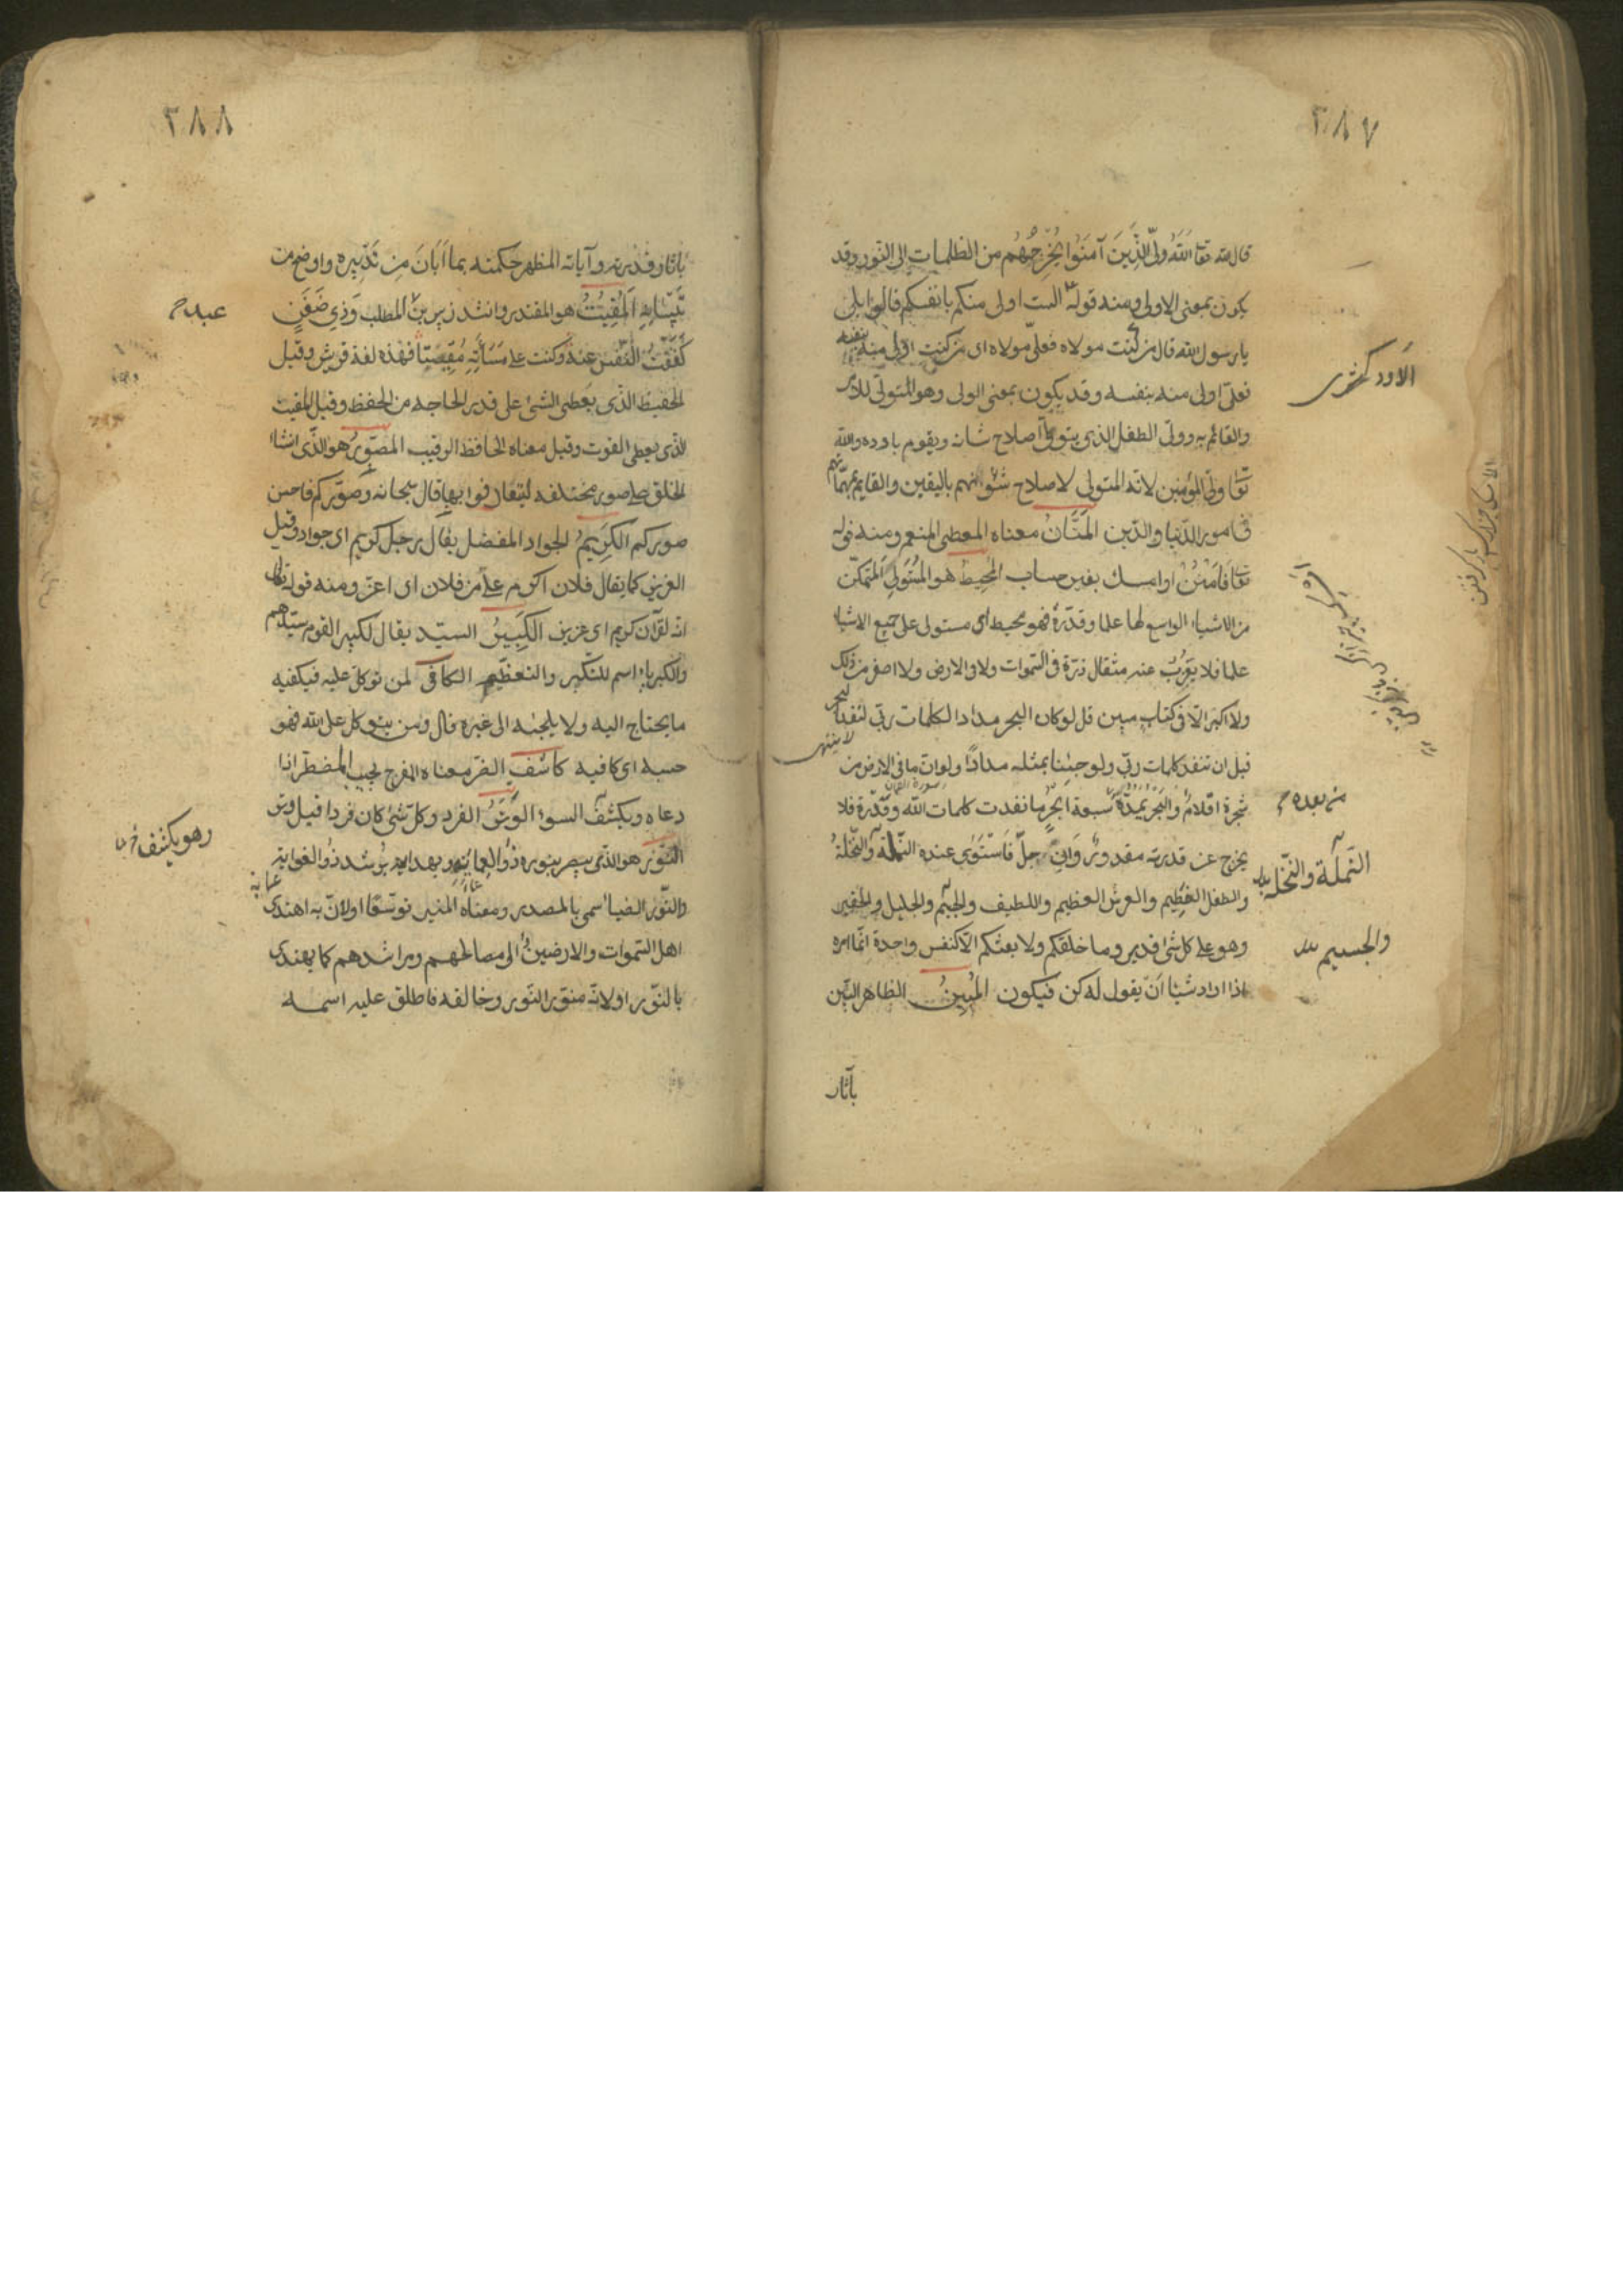 ٢٨٧
قال الله تعا اللهُ وَلِيُّ الَّذِينَ آمَنُوا يُخْرِجُهُم من الظلمات الى النّور وقد
يكون بمعنى الاولى ومنه قوله ألست اولى منكم بانفسكم قالوا بلى
يا رسول الله قال من كنت مولاه فعلىّ مولاه اى من كنت اولى منه بنفسه
فعلىّ اولى منه بنفسه وقد يكون بمعنى الولى وهو المتولّى للامر
والقائم به وولىّ الطفل الذى يتولّى اصلاح شانه ويقوم بامره والله
تعا ولىّ المؤمنين لانه المتولى لاصلاح شؤانهم باليقين والقايم بمهمّاتهم
فى امور الدّنيا والدّين المَنَّانُ معناه المعطى المنعم ومنه قوله
تعا فَامْنُنْ او امسك بغير حساب المُحِيطُ هو المُتَولِّى المتمكّن
من الاشياء الواسع لها علما وقدرةً فهو محيط اى مستولى على جميع الاشياء
علما فلا يَعزُبُ عنه مثقال ذرّة فى السّموات ولا فى الارض ولا اصغر من ذلك
ولا اكبر الّا فى كتاب مبين قل لو كان البحر مدادا لكلمات ربّى لنفد البحر
قبل ان تنفد كلمات ربّى ولو جئنا بمثله مدادًا ولو ان ما فى الارض من
شجرة اقلامٌ والبحر يمدّه سبعة ابحرٍ ما نفدت كلمات الله وقُدْرة فلا
يخرج عن قدرته مقدورٌ وَاِنْ جلّ فَاسْتَوٰى عنده النّملة والنّخلةُ
والطفل الفَطِيم والعرش العظيم واللطيف والجسيم والجليل والحقير
وهو على كل شئ قدير وما خلقكم ولا بعثكم الّا كنفس واحدة انّما امره
اذا اراد شيئا اَنْ يقول له كن فيكون المُبِينُ الظاهر البيّن
بآثار
من بعده
النّملَة والنّخلة
والجسيم
٢٨٨
بآثار قدرته وآياته المظهر حكمته بما اَبَانَ مِن تَدْبِيره واوضح من
تِبْيَانِه المُقِيتُ هو المقتدر وانشد زبير بن المطلب وَذِى ضَغَنٍ
كَفَفْتُ النَّفْسَ عنه وكنت على مَسَاَتِه مُقِيتًا فهذه لغة قريش وقيل
الحفيظ الذى يعطى الشئ على قدر الحاجة من الحفظ وقيل المقيت
الذى يعطى القوت وقيل معناه الحافظ الرقيب المصَوِّرُ هو الذى انشا
الخلق على صور مختلفه ليتعارفوا بها قال سبحانه وصوّركم فاحسن
صوركم الكَرِيمُ الجواد المفضل يقال رجل كريم اى جواد وقيل
العزيز كما يقال فلان اكرم علىّ من فلان اى اعزّ ومنه قوله تعالى
انه لقرآن كريم اى عزيز الكَبِيرُ السيّد يقال لكبير القوم سيّدهم
والكبرياء اسم للتكبّر والتعظيم الكَافِى لمن توكل عليه فيكفيه
ما يحتاج اليه ولا يلجئه الى غيره قال ومن يتوكل على الله فهو
حسبه اى كافيه كَاشفُ الضرّ معناه المفرج يجيب المضطر اذا
دعاه ويكشف السوء الوِتْرُ الفرد وكل شئ كان فردا قيل وتر
النّورُ هو الذى يبصر بنوره ذُو العِمَايَةِ وبهدايته يُرشد ذُو الغواية
والنّور الضيا سمى بالمصدر ومعناه المنير توسّعًا او لانّ به اهتدى
اهل السّموات والارضين الى مصالحهم ومراشدهم كما يهتدى
بالنّور او لانّه منوّر النّور وخالقه فاطلق عليه اسمه
عبد
وهو يكشف